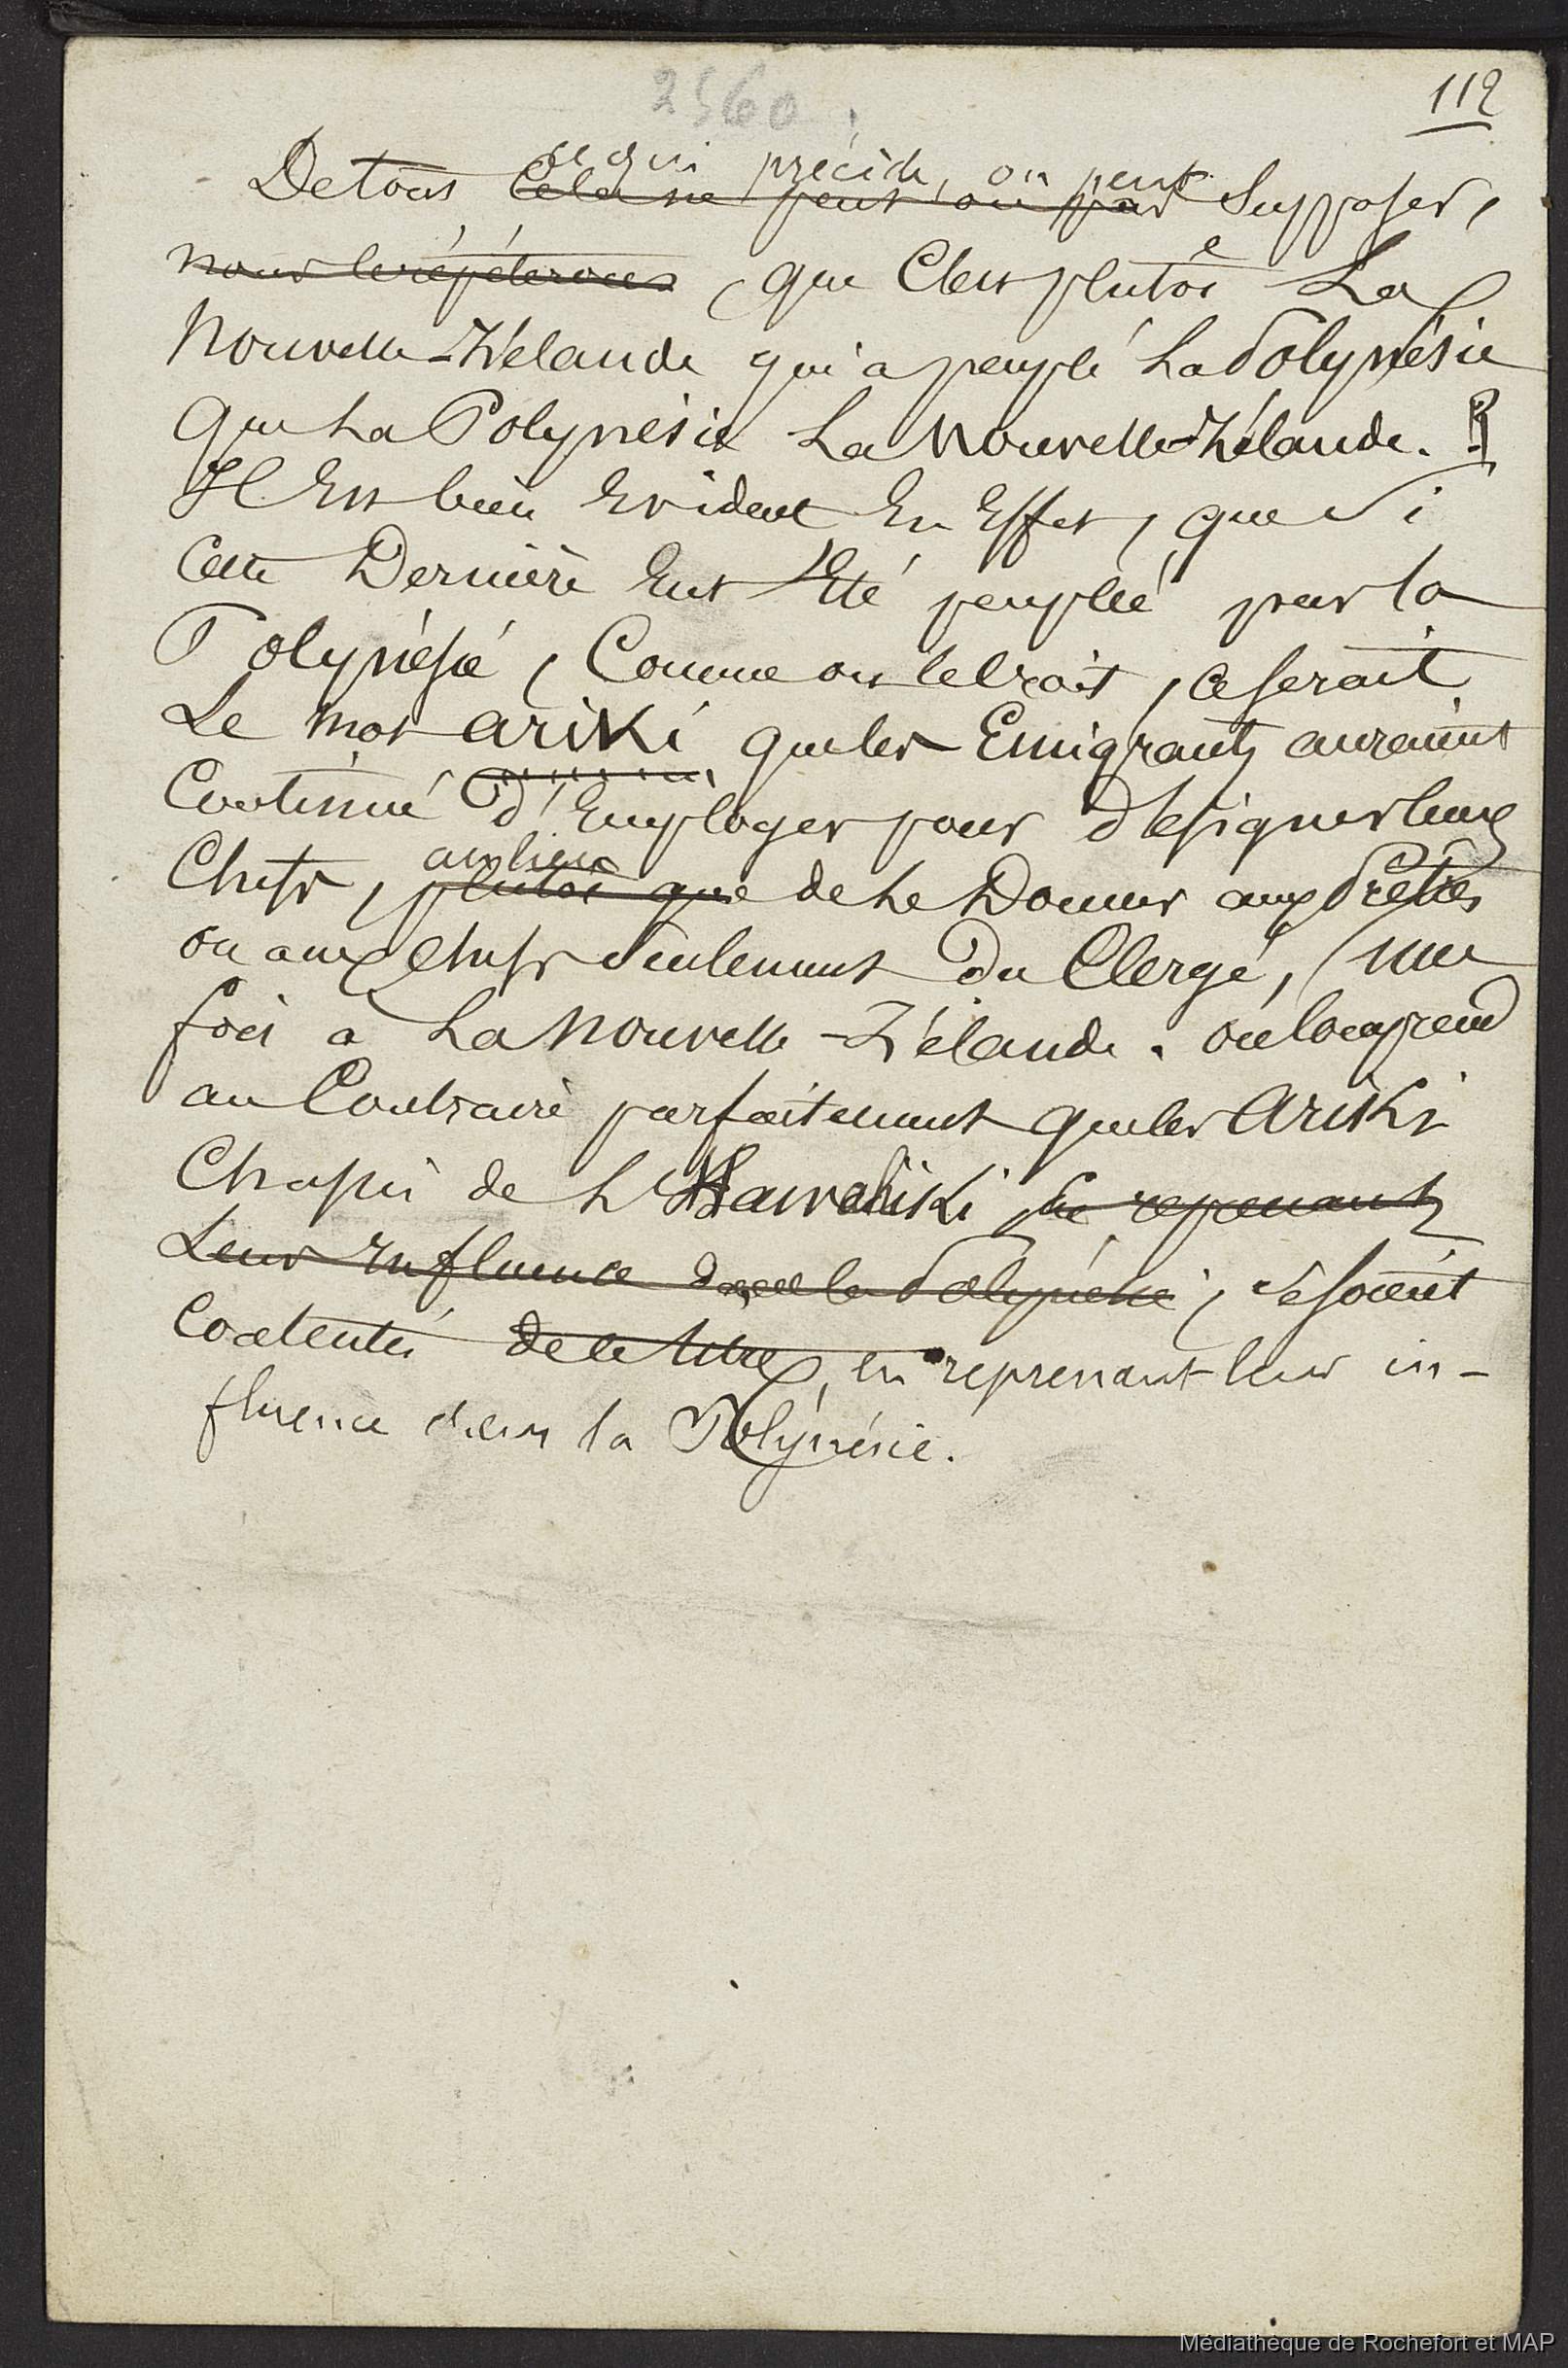 2560
112
ce qui précède, on peut
De tous Cela ne peut on pas Supposer,
nous le répéterons, que C'est plutôt La
Nouvelle-Zélande qui a peuplé La Polynésie
Que La Polynésie La Nouvelle-Zélande.
Il Est bien Evident En Effet, que Si
Cette Dernière Eut Eté peuplée par la
Polynésie, Comme on le Croit, ce serait
Le mot ariki que les Emigrants auraient
Continué d'Employer pour désigner leurs
au lieu
Chefs, plutôt que de Le Donner aux Prêtres
ou aux Chefs Seulement Du Clergé, une
fois à La Nouvelle-Zélande. on Comprend
au Contraire parfaitement que les Ariki
Chassés de L'Hawahiki, en reprenant
Leur Influence dans la Polynésie, se soient
Contentés de ce titre, en reprenant leur in-
fluence dans la Polynésie.
Médiathèque de Rochefort et MAP